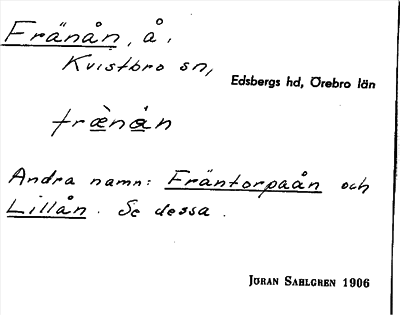 Fränån, å,
Kvistbro sn,
Edsbergs hd, Örebro län
fræ̀nån
Andra namn: Fräntorpaån och
Lillån. Se dessa.
Jöran Sahlgren 1906